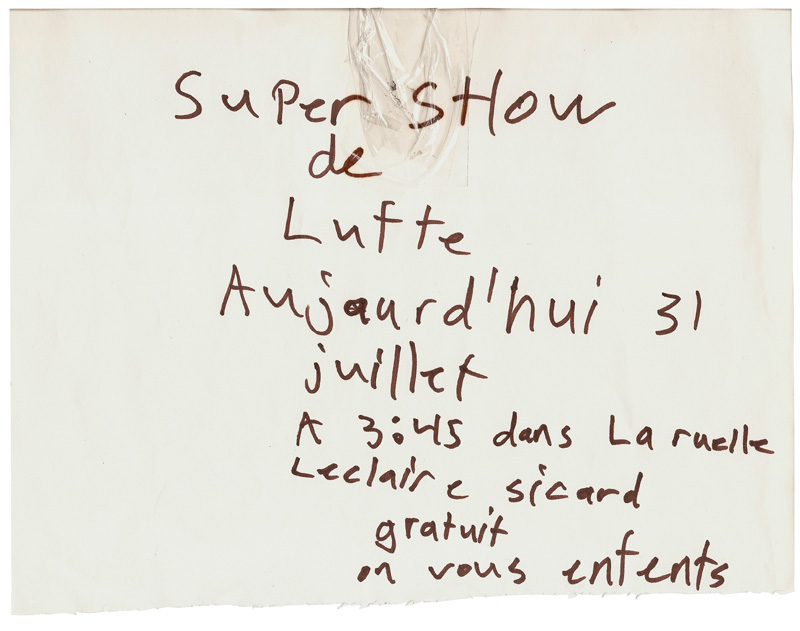 Super SHow
de
Lufte
Aujaurd'hui 31
juillet
A 3:45 dans La ruelle
Leclaire sicard
gratuit
on vous entents